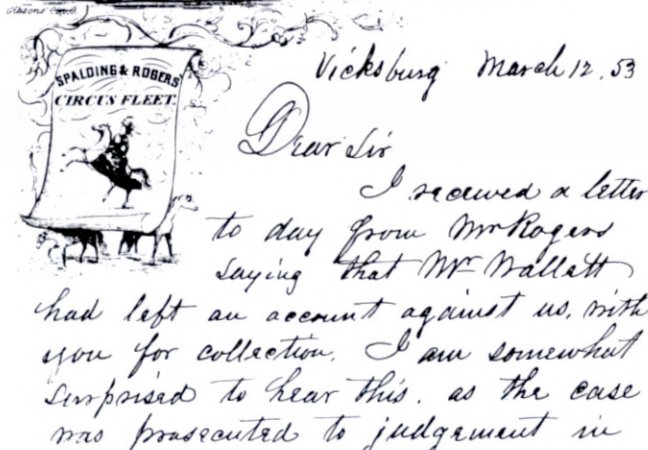 SPALDING & ROGERS
CIRCUS FLEET.
Vicksburg March 12. 53
Dear Sir
I received a letter
to day from Mr Rogers
saying that Mr Wallett
had left an account against us, with
you for collection. I am somewhat
surprised to hear this. as the case
was prosecuted to judgement in